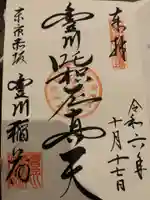 奉拝
令和六年
十月十七日
豊川吒枳尼真天
東京赤坂
豊川稲荷